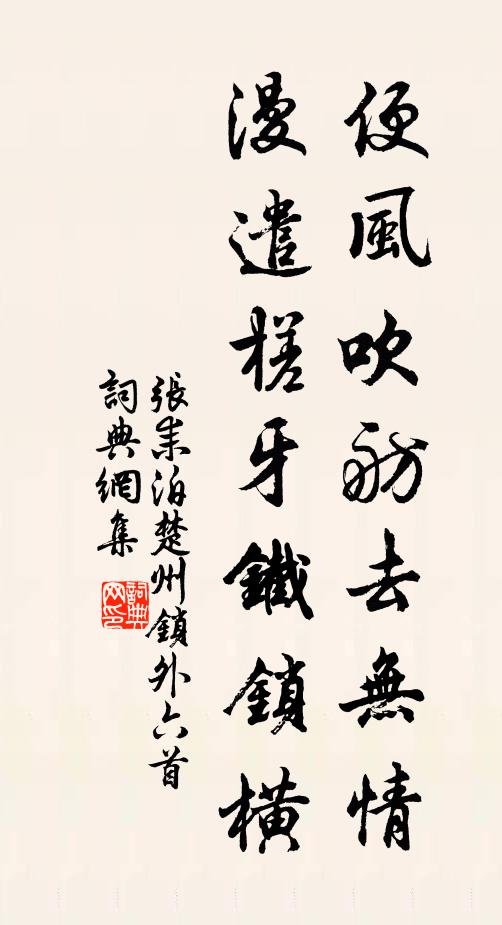 便風吹舫去無情
漫遣槎牙鐵鎖橫
張耒泊楚州鎖外六首
詞典網集
詞典網印